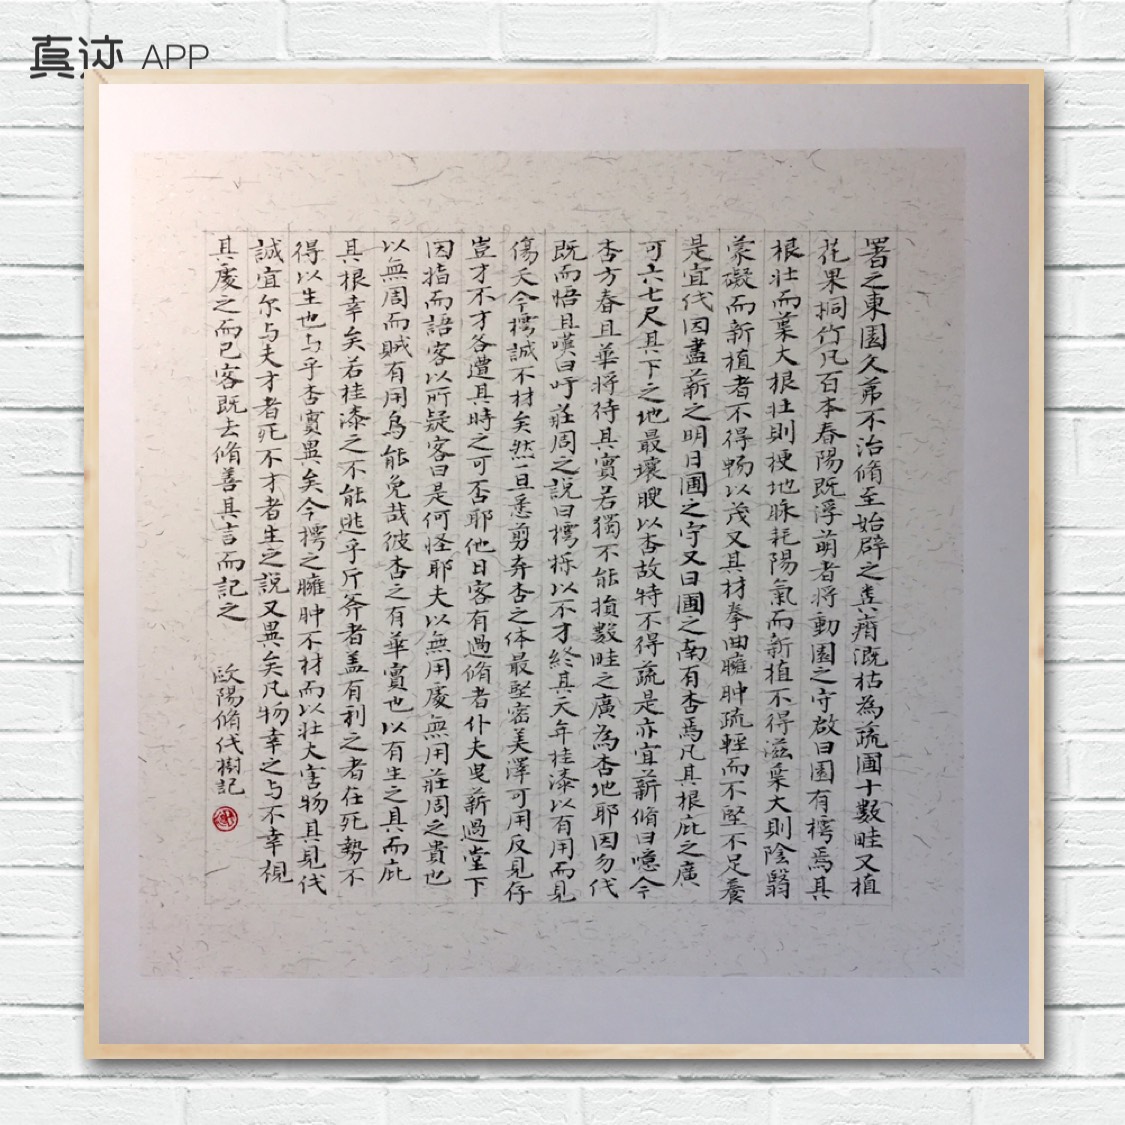 真迹 APP
署之東園久茀不治脩至始辟之糞瘠溉枯為蔬圃十數畦又植
花果桐竹凡百本春陽既浮萌者將動園之守啟曰園有樗焉其
根壯而葉大根壯則梗地脉耗陽氣而新植不得滋葉大則陰翳
蒙礙而新植者不得畅以茂又其材拳曲臃肿疏輕而不堅不足養
是宜伐因盡薪之明日圃之守又曰圃之南有杏焉凡其根庇之廣
可六七尺其下之地最壤腴以杏故特不得蔬是亦宜薪脩曰噫今
杏方春且華将待其實若獨不能損數畦之廣為杏地耶因勿伐
既而悟且嘆曰吁莊周之説曰樗栎以不才終其天年桂漆以有用而見
傷夭今樗誠不材矣然一旦悉剪弃杏之体最堅密美澤可用反見存
豈才不才各遭其時之可否耶他日客有過脩者仆夫曳薪過堂下
因指而語客以所疑客曰是何怪耶夫以無用處無用莊周之貴也
以無周而賊有用烏能免哉彼杏之有華實也以有生之具而庇
其根幸矣若桂漆之不能逃乎斤斧者盖有利之者在死勢不
得以生也与乎杏實異矣今樗之臃肿不材而以壮大害物其見伐
誠宜尔与夫才者死不才者生之説又異矣凡物幸之与不幸視
其處之而已客既去脩善其言而記之 欧陽脩伐樹記